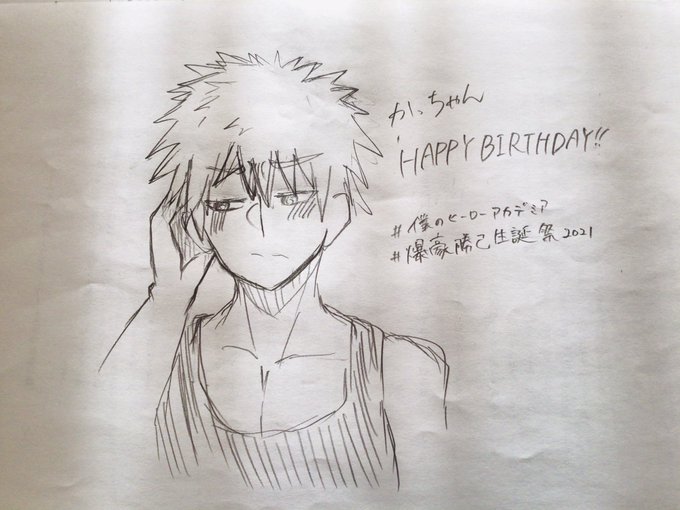 かっちゃん
HAPPY BIRTHDAY!!
#僕のヒーローアカデミア
#爆豪勝己生誕祭2021